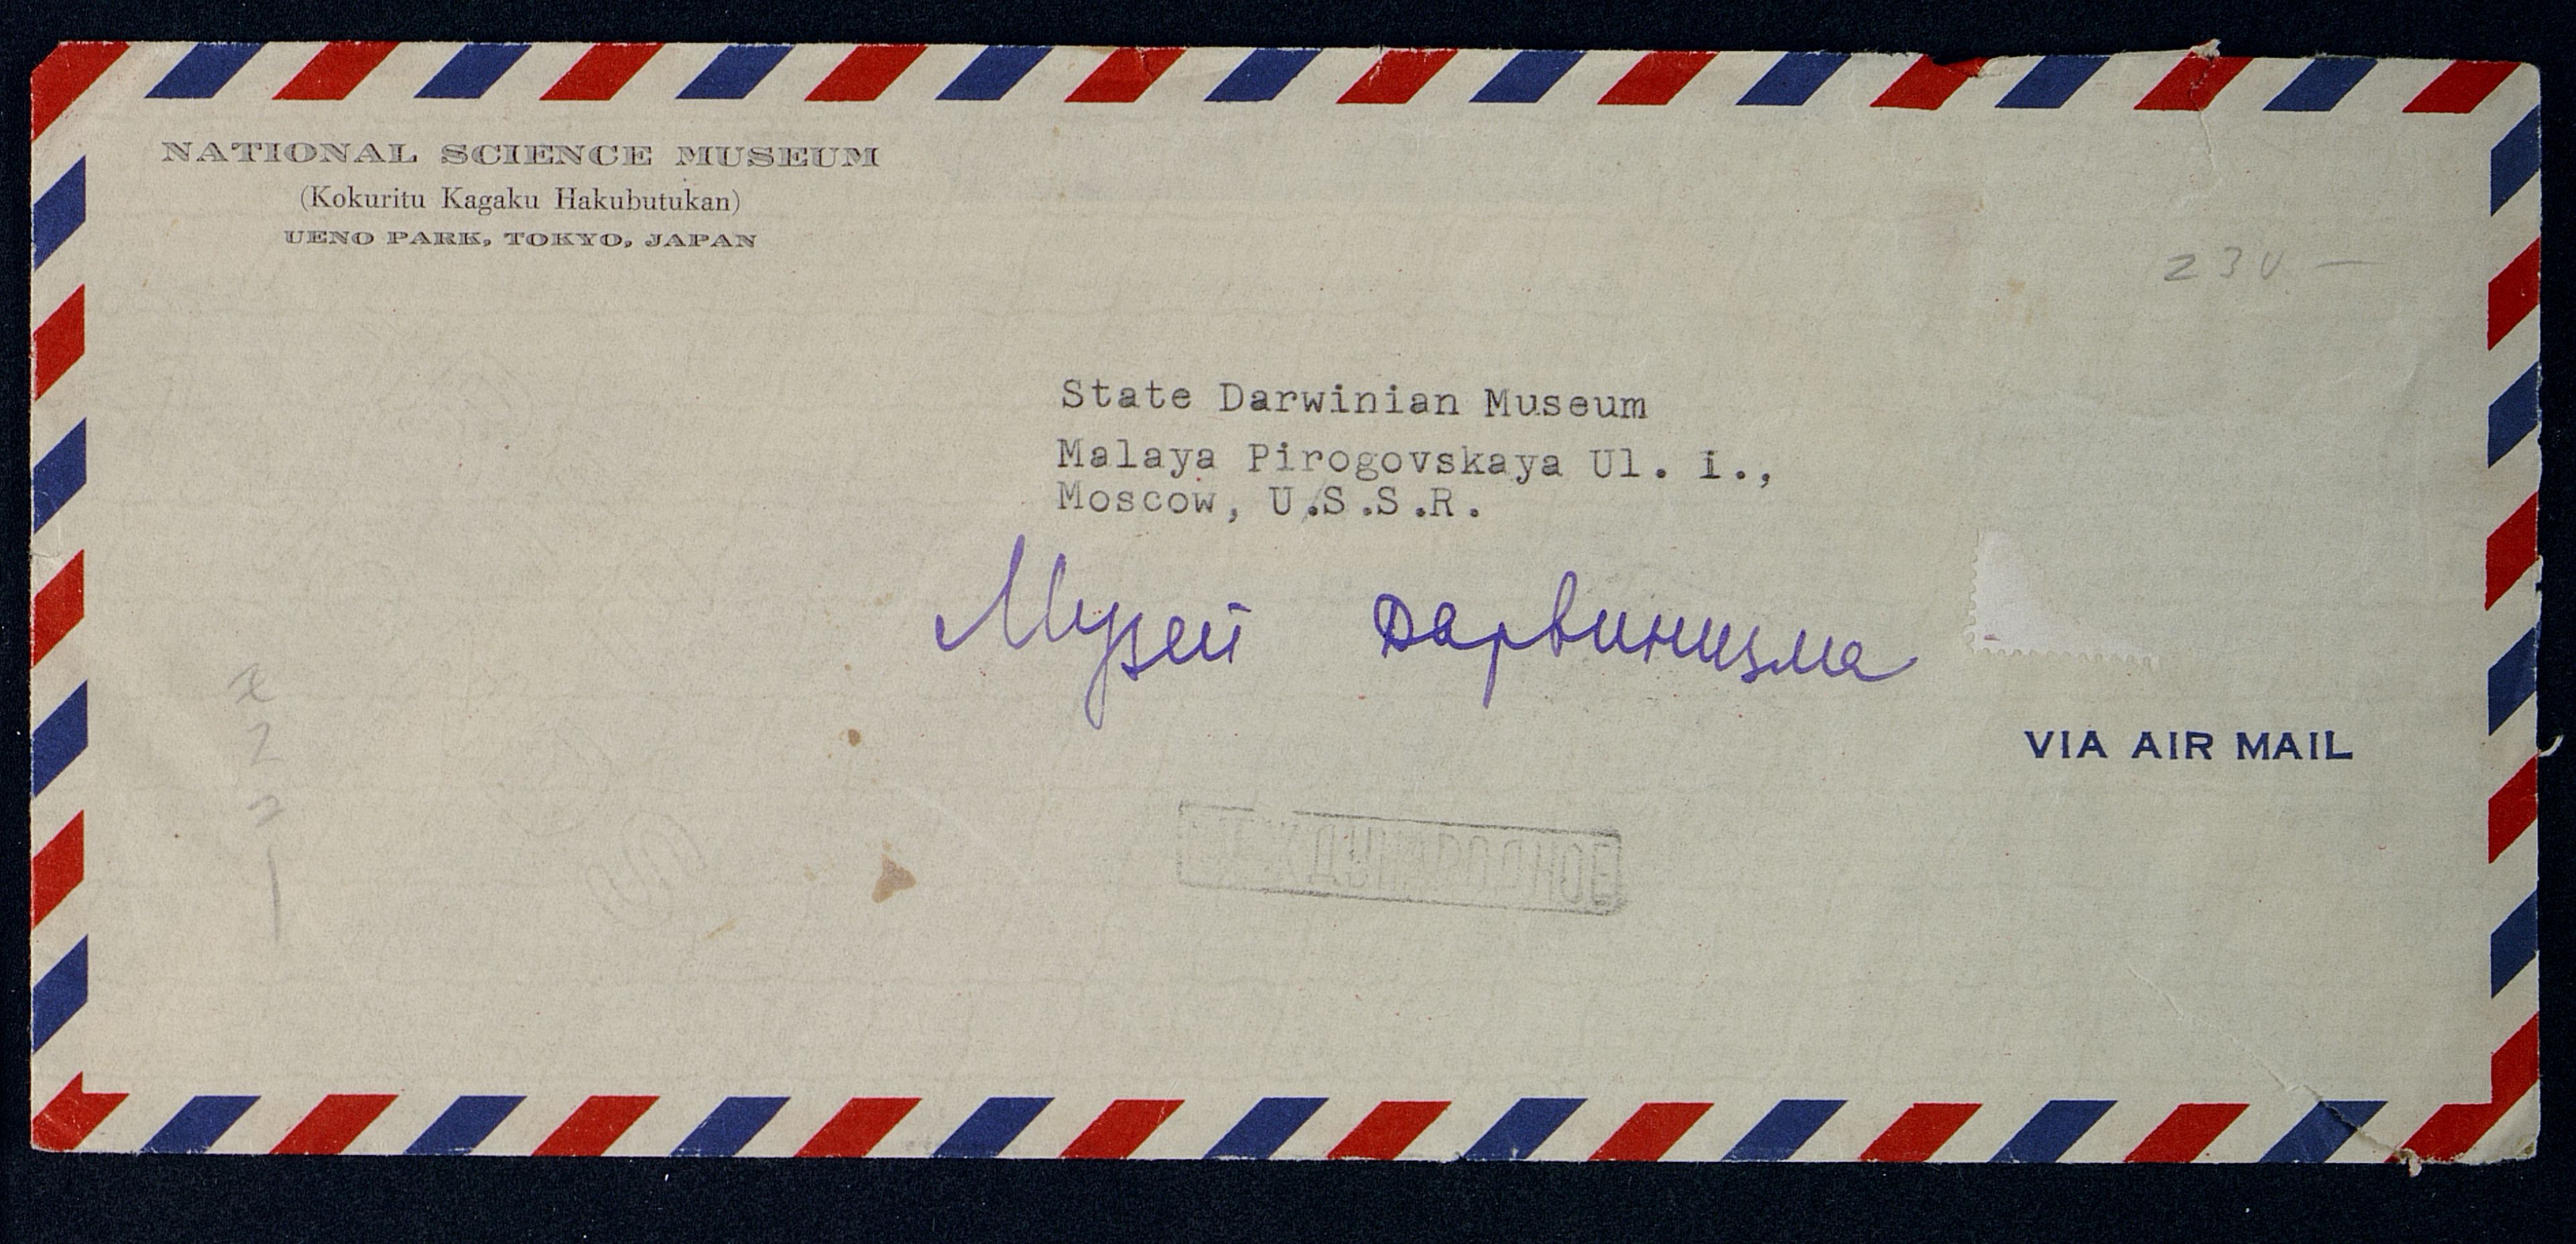 NATIONAL SCIENCE MUSEUM
(Kokuritu Kagaku Hakubutukan)
UENO PARK, TOKYO, JAPAN
State Darwinian Museum
Malaya Pirogovskaya Ul. 1.,
Moscow, U.S.S.R.
Музей Дарвинизма
VIA AIR MAIL